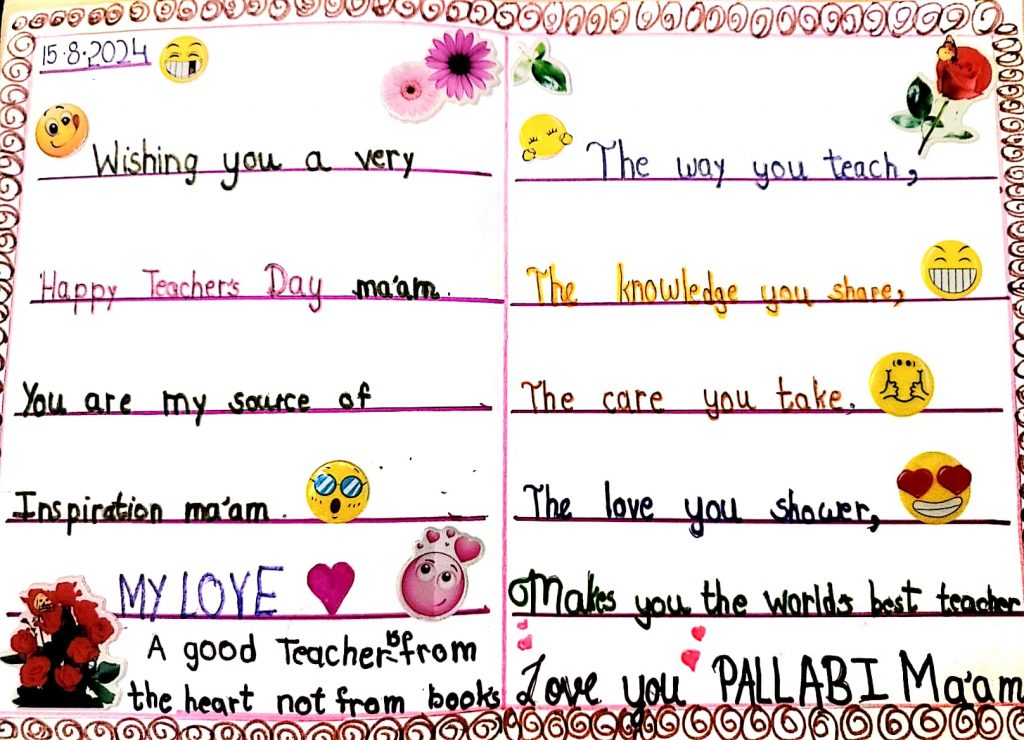 15.8.2024
Wishing you a very
Happy Teacher's Day ma'am.
You are my source of
Inspiration ma'am.
MY LOVE
A good Teacher is from
the heart not from books
The way you teach,
The knowledge you share,
The care you take.
The love you shower,
Makes you the worlds best teacher
Love you PALLABI Ma'am